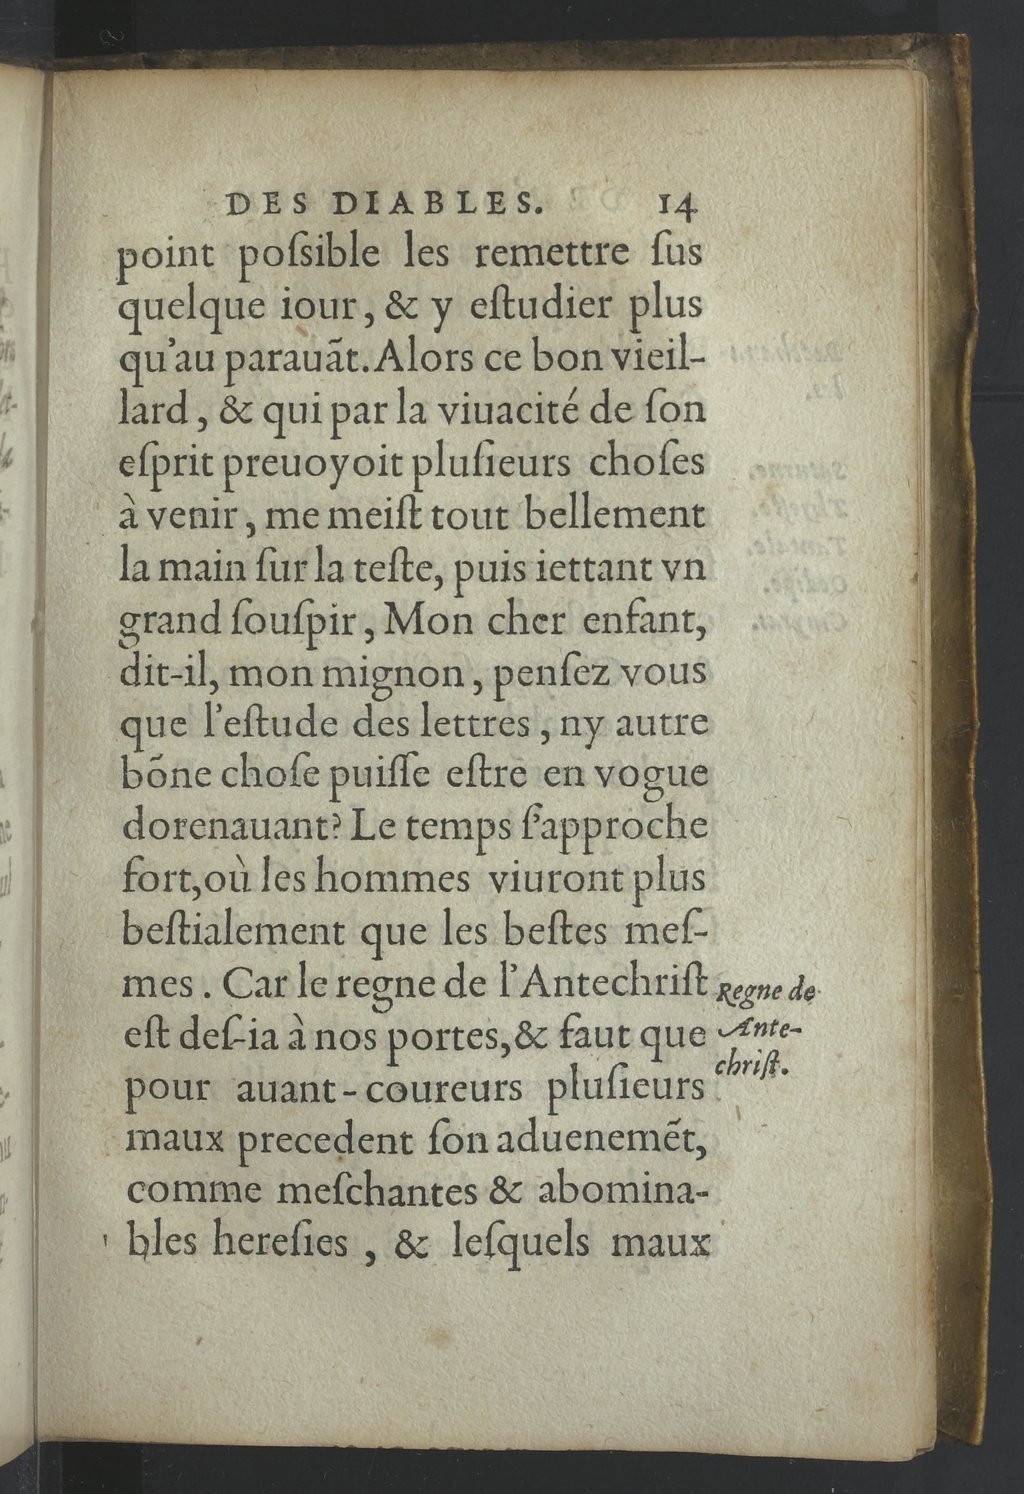 DES DIABLES. 14
point poſsible les remettre ſus
quelque iour, & y eſtudier plus
qu'au parauãt. Alors ce bon vieil-
lard, & qui par la viuacité de ſon
eſprit preuoyoit pluſieurs choſes
à venir, me meiſt tout bellement
la main ſur la teſte, puis iettant vn
grand ſouſpir, Mon cher enfant,
dit-il, mon mignon, penſez vous
que l'eſtude des lettres, ny autre
bõne choſe puiſſe eſtre en vogue
dorenauant? Le temps ſ'approche
fort, où les hommes viuront plus
beſtialement que les beſtes meſ-
mes. Car le regne de l'Antechriſt
eſt deſ-ia à nos portes, & faut que
pour auant-coureurs pluſieurs
maux precedent ſon aduenemẽt,
comme meſchantes & abomina-
bles hereſies, & leſquels maux
Regne de
Ante-
chriſt.